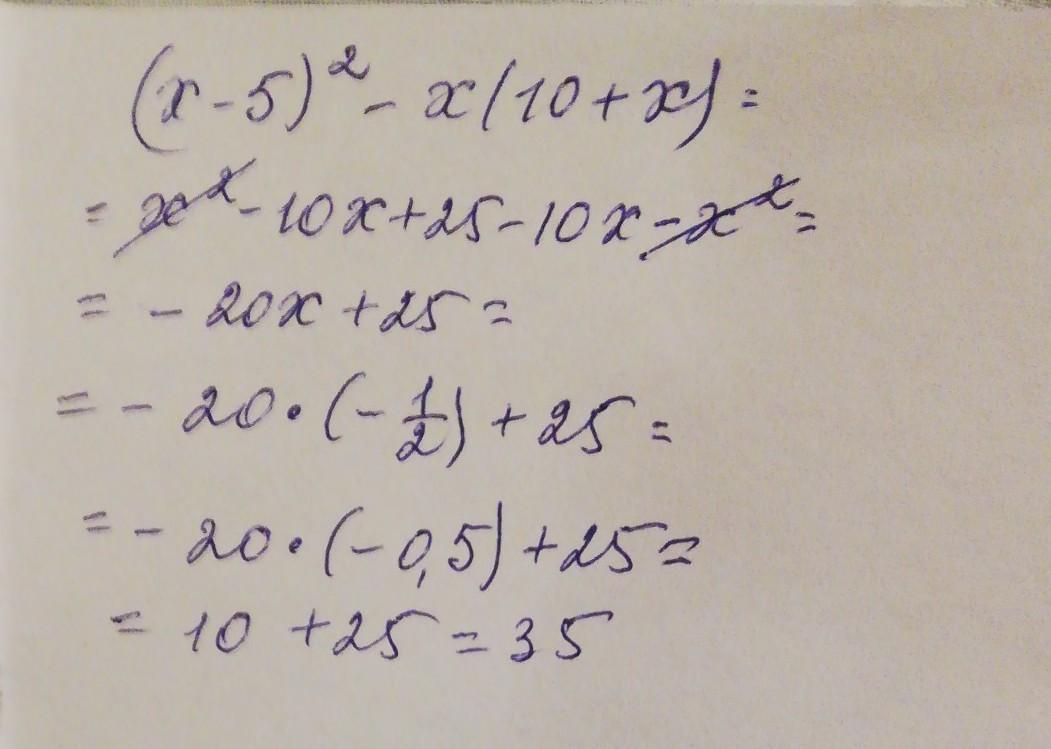 (x-5)² - x(10+x) =
= x² - 10x + 25 - 10x - x² =
= - 20x + 25 =
= - 20 · (- 1/2) + 25 =
= - 20 · (- 0,5) + 25 =
= 10 + 25 = 35